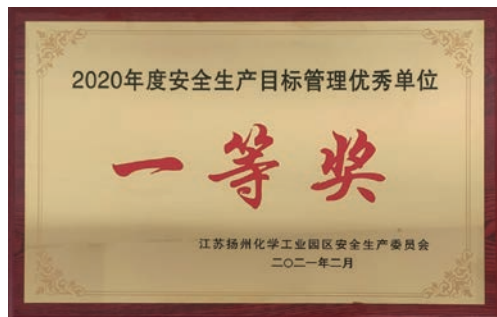 2020年度安全生产目标管理优秀单位
一等奖
江苏扬州化学工业园区安全生产委员会
二〇二一年二月